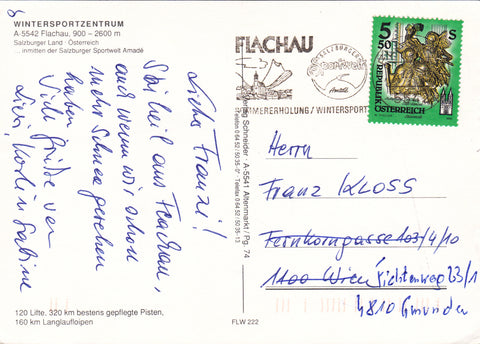 WINTERSPORTZENTRUM
A-5542 Flachau, 900 – 2600 m
Salzburger Land · Österreich
...inmitten der Salzburger Sportwelt Amadé
Lieber Franzi!
Ski heil aus Flachau,
auch wenn wir schon
mehr Schnee gesehen
haben
Viele Grüße von
Lisi, Karl u. Sabine
120 Lifte, 320 km bestens gepflegte Pisten,
160 km Langlaufloipen
FLW 222
Verlag Schneider · A-5541 Altenmarkt / Pg. 74
FLACHAU
SALZBURGER
Sportwelt
Amadé
SOMMERERHOLUNG / WINTERSPORT
5 50 S
REPUBLIK
ÖSTERREICH
Herrn
Franz KLOSS
Fernkorngasse 103/4/10
1100 Wien Fichtenweg 23/1
4810 Gmunden